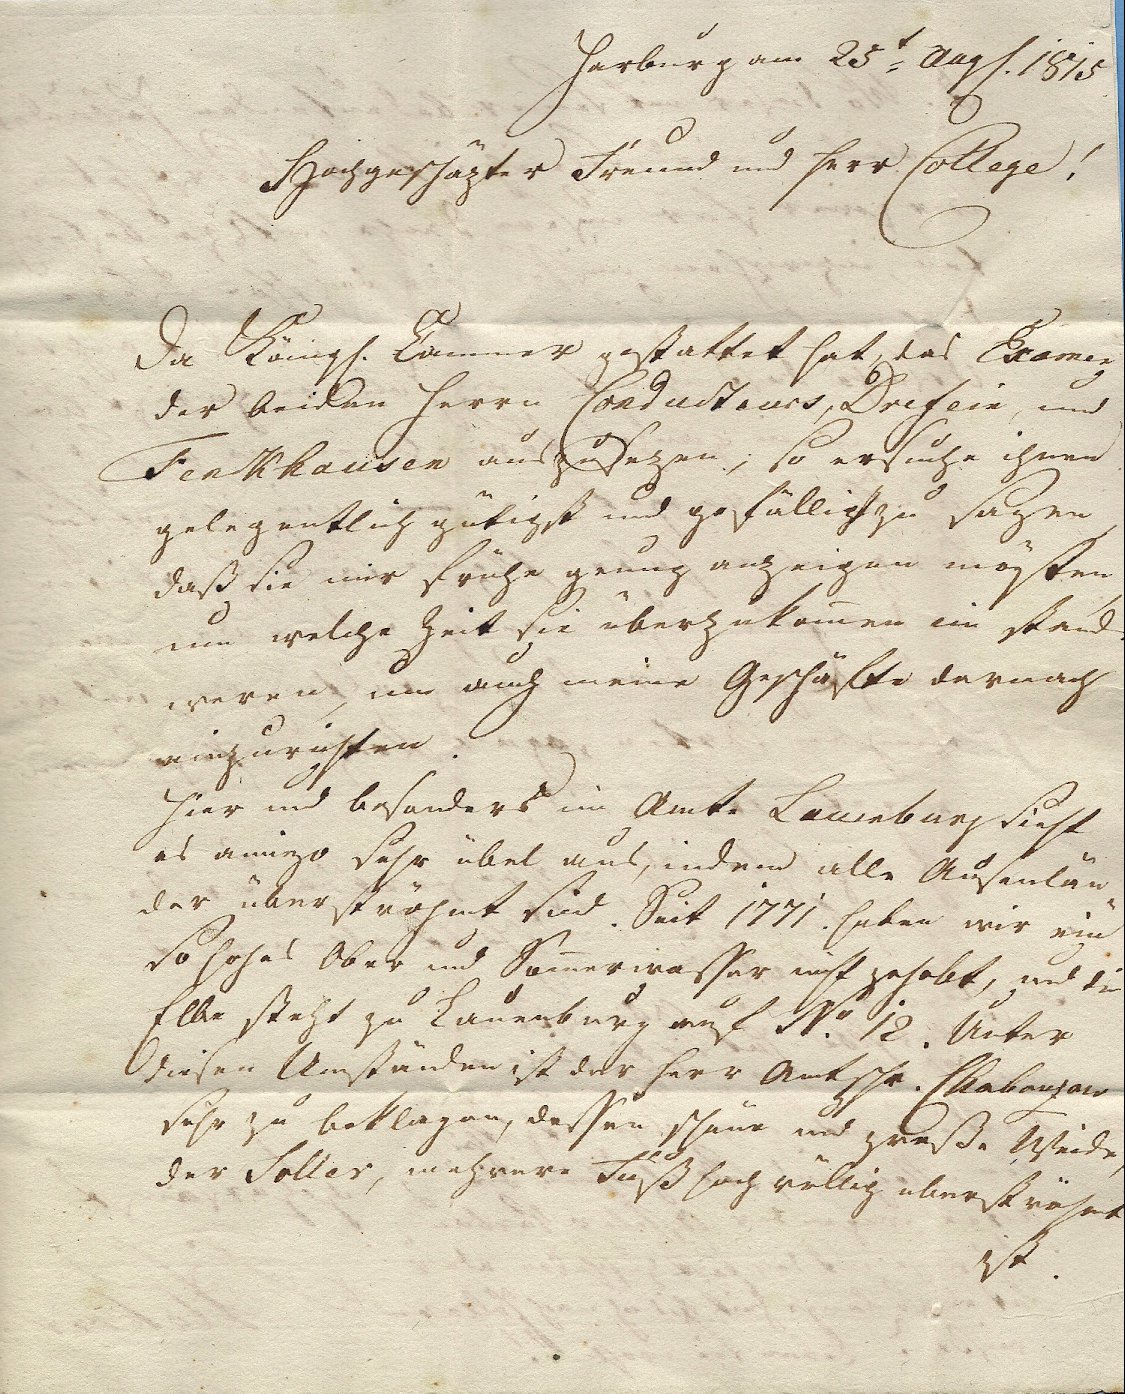 Harburg am 25t Augs. 1815
Hochgeschäzter Freund und Herr College!
Da Königl. Cammer gestattet hat, das Examen
der beiden Herrn Conducteurs, Drefein und
Fenkhausen auszusezen, so ersuche ihnen
gelegentlich gütigst und gefälligst zu sagen,
daß sie mir frühe genug anzeigen mögten,
um welche Zeit sie überzukom̄en im stand
weren, um auch meine Geschäfte darnach
einzurichten.
Hier und besonders im Amte Lauenburg sieht
es aniezo sehr übel aus, indem alle Ausenlän
der überströhmt sind. Seit 1771. haben wir ein
so hohes Ober und Som̄erwasser nicht gehabt, und die
Elbe steht zu Lauenburg auf No. 12. Unter
diesen Umständen ist der Herr Amtschr.
sehr zu beklagen, dessen schöne und große Weide,
der Soller, mehrere Fuß hoch völlig überströhmt
ist.